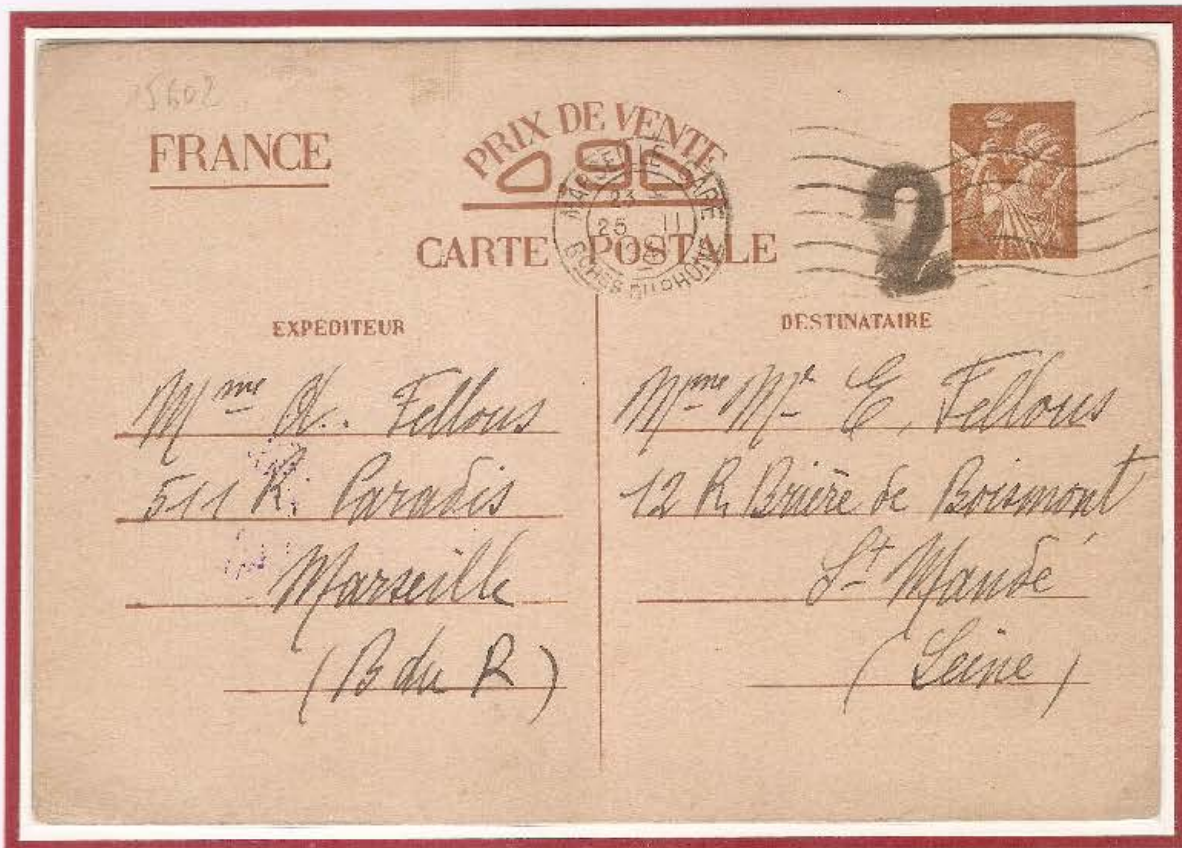 FRANCE
PRIX DE VENTE
0,90
CARTE POSTALE
MARSEILLE GARE
23
25 II
BCHES DU RHONE
2
EXPÉDITEUR
Mme A. Fellous
511 R. Paradis
Marseille
(B du R)
DESTINATAIRE
Mme Mr E. Fellous
12 R. Brière de Boismont
St Mandé
(Seine)